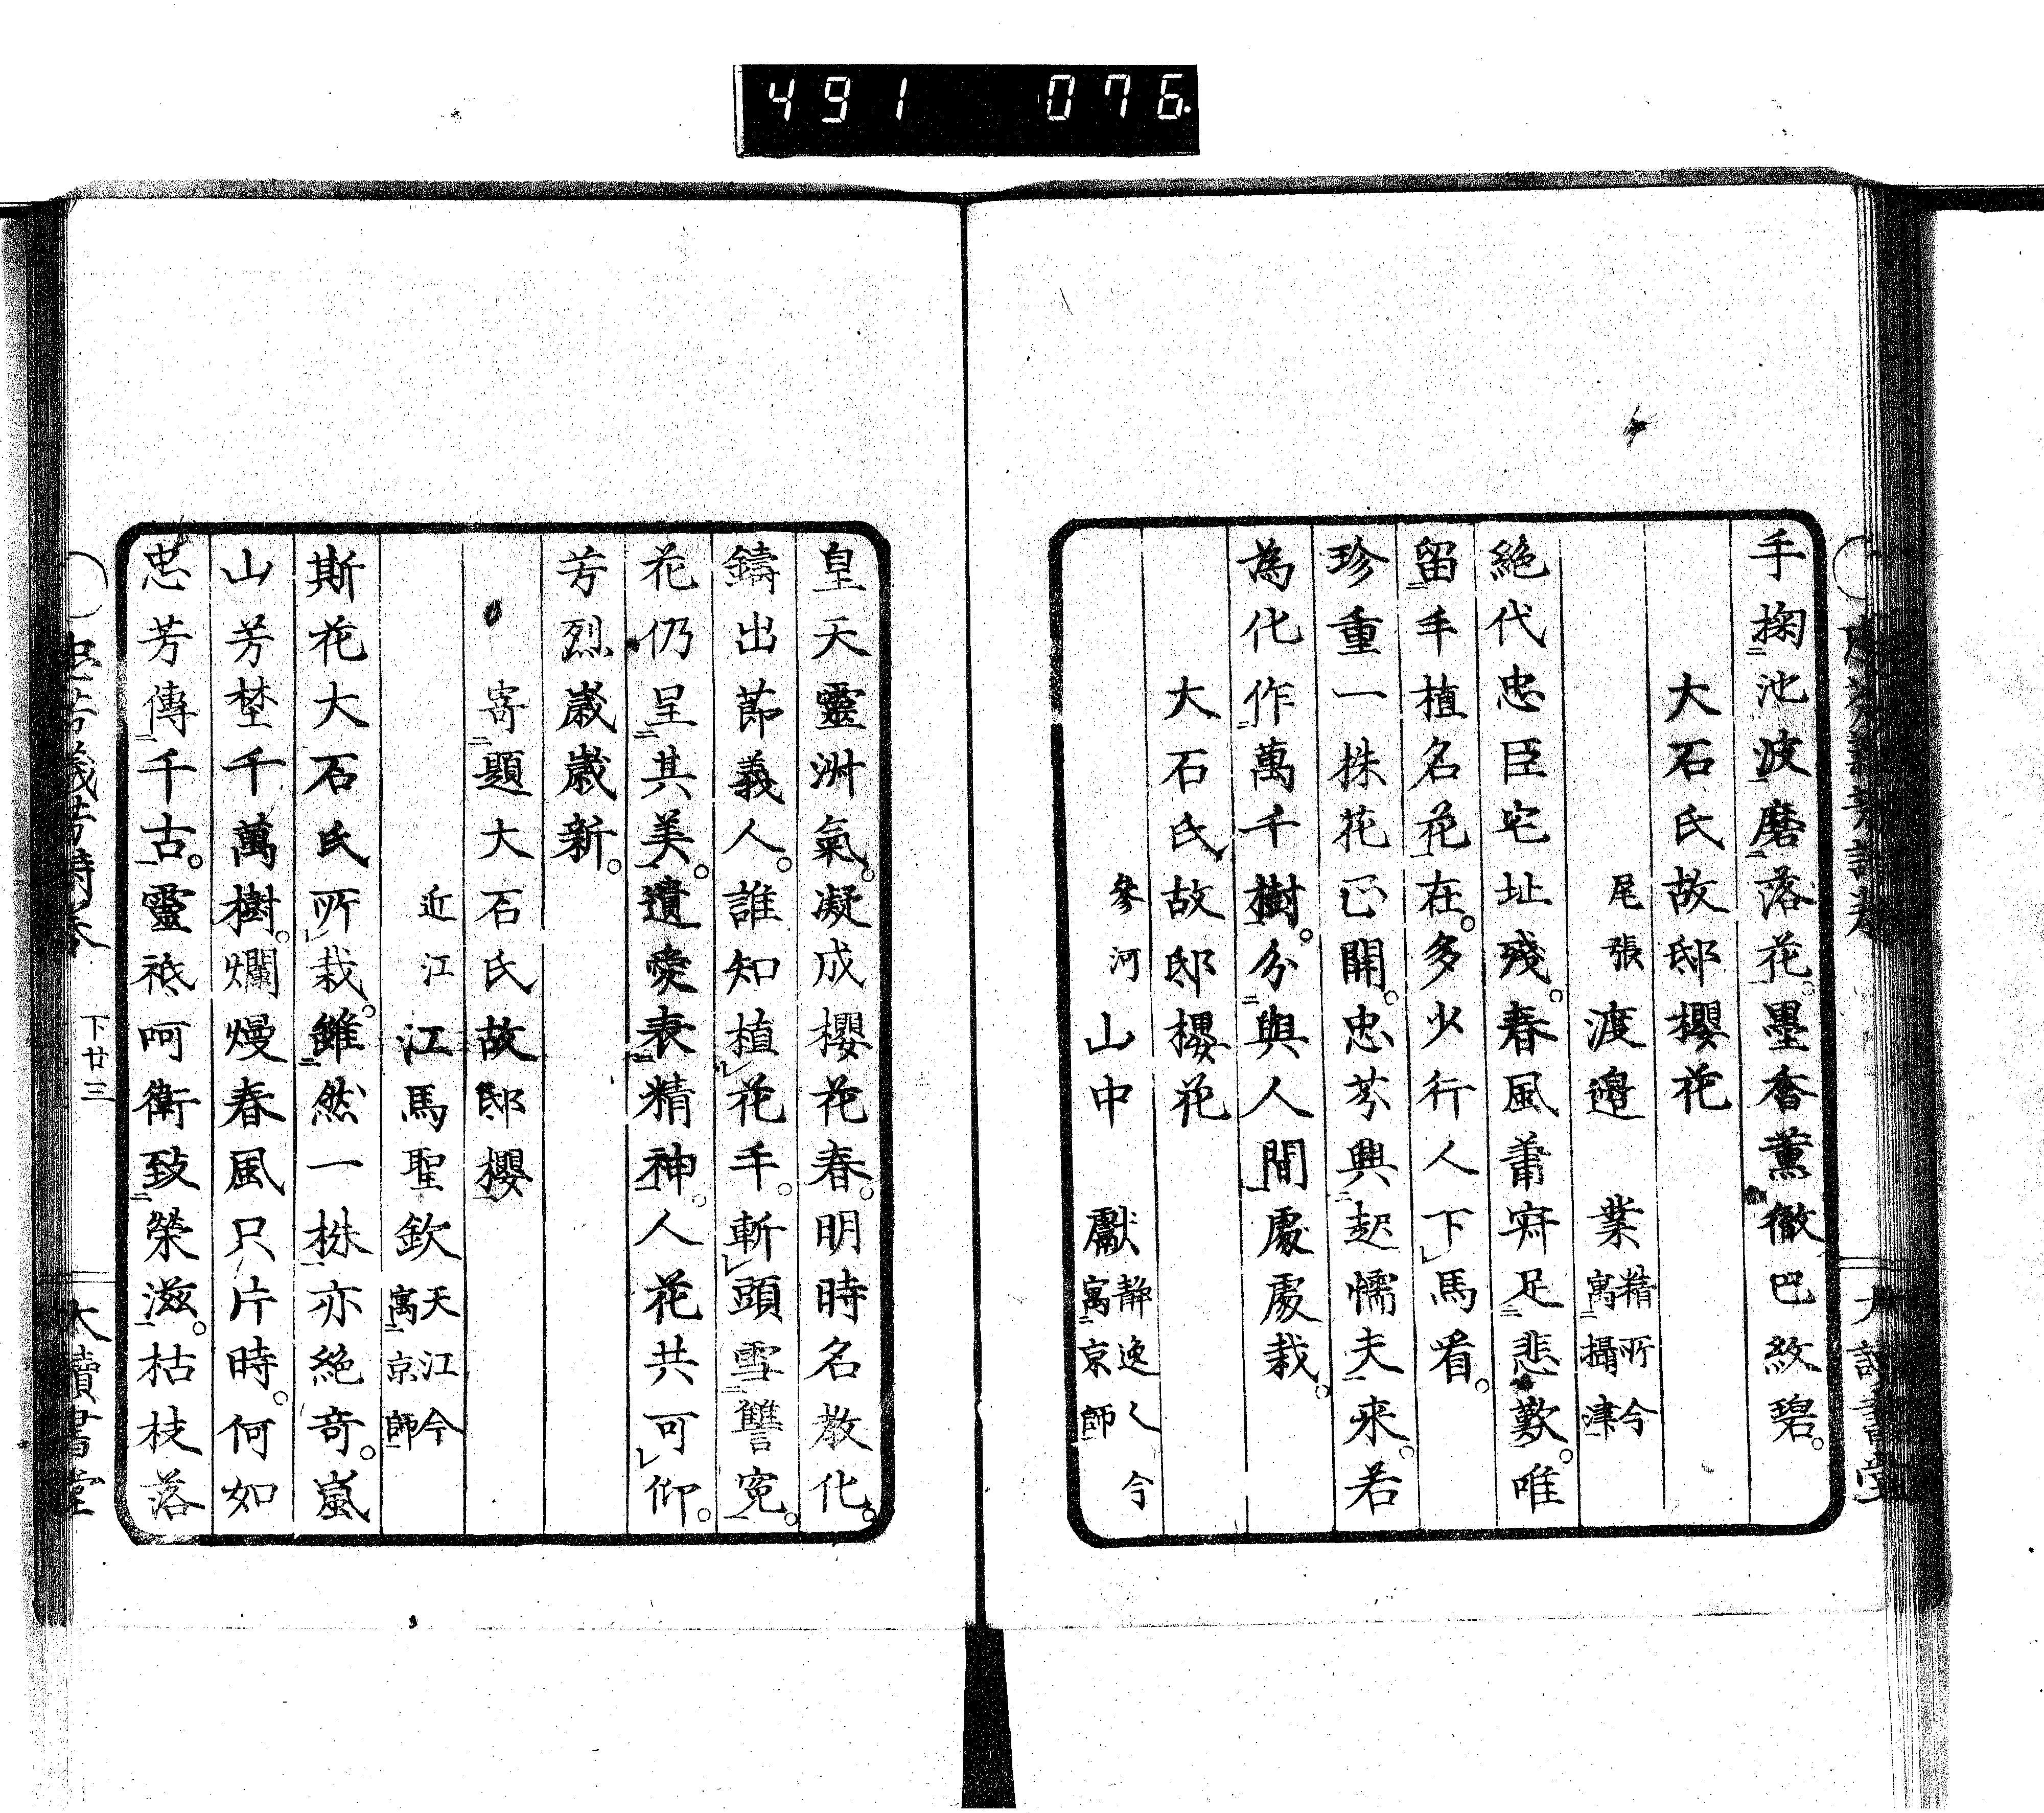 491 076
手掬池波磨落花墨香薰徹巴紋碧
大石氏故邸櫻花
尾張 渡邉 業 精所今寓攝津
絶代忠臣宅址殘春風蕭寂足悲歎唯
留手植名花在多少行人下馬看
珍重一株花已開忠芬興起懦夫来若
為化作萬千樹分與人間處處栽
大石氏故邸櫻花
參河 山中 獻 静逸人今寓京師
皇天靈淋氣凝成櫻花春明時名教化
鑄出節義人誰知植花手斬頭雪讐寃
花仍呈其美遺愛表精神人花共可仰
芳烈歳歳新
寄題大石氏故邸櫻
近江 江馬聖欽 天江今寓京師
斯花大石氏所栽雖然一株亦絶奇嵐
山芳埜千萬樹爛熳春風只片時何如
忠芳傳千古靈祗呵衛致榮滋枯枝落
下廿三
讀書堂